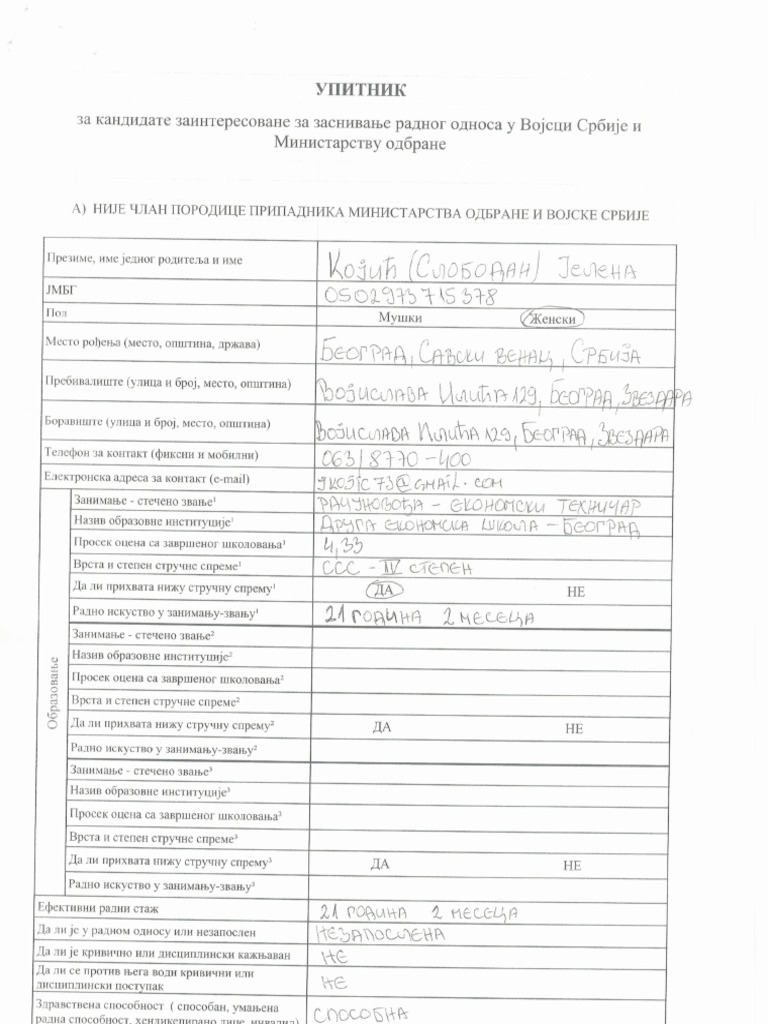 УПИТНИК
за кандидате заинтересоване за заснивање радног односа у Војсци Србије и
Министарству одбране
А) НИЈЕ ЧЛАН ПОРОДИЦЕ ПРИПАДНИКА МИНИСТАРСТВА ОДБРАНЕ И ВОЈСКЕ СРБИЈЕ
Презиме, име једног родитеља и име Којић (Слободан) Јелена
ЈМБГ 0502973715378
Пол Мушки Женски
Место рођења (место, општина, држава) Београд, Савски венац, Србија
Пребивалиште (улица и број, место, општина) Војислава Илића 129, Београд, Звездара
Боравиште (улица и број, место, општина) Војислава Илића 129, Београд, Звездара
Телефон за контакт (фиксни и мобилни) 063/8770-400
Електронска адреса за контакт (e-mail) jkojic73@gmail.com
Образовање
Занимање - стечено звање¹ Рачуновођа - економски техничар
Назив образовне институције¹ Друга економска школа - Београд
Просек оцена са завршеног школовања¹ 4,33
Врста и степен стручне спреме¹ ССС - IV степен
Да ли прихвата нижу стручну спрему¹ ДА НЕ
Радно искуство у занимању-звању¹ 21 година 2 месеца
Занимање - стечено звање²
Назив образовне институције²
Просек оцена са завршеног школовања²
Врста и степен стручне спреме²
Да ли прихвата нижу стручну спрему² ДА НЕ
Радно искуство у занимању-звању²
Занимање - стечено звање³
Назив образовне институције³
Просек оцена са завршеног школовања³
Врста и степен стручне спреме³
Да ли прихвата нижу стручну спрему³ ДА НЕ
Радно искуство у занимању-звању³
Ефективни радни стаж 21 година 2 месеца
Да ли је у радном односу или незапослен Незапослена
Да ли је кривично или дисциплински кажњаван Не
Да ли се против њега води кривични или
дисциплински поступак Не
Здравствена способност ( способан, умањена
радна способност, хендикепирано лице, инвалид) Способна